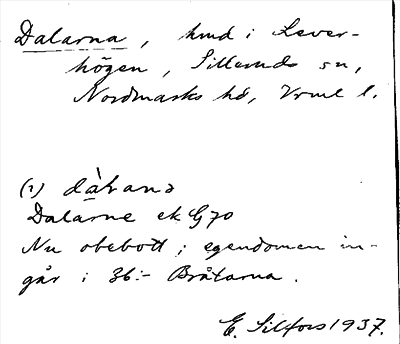 Dalarna, hmd i Lever-
högen, Silleruds sn,
Nordmarks hd, Vrml l.
(1) dàɫanə
Dalarne ek G70
Nu obebott; egendomen in-
går i 36:- Bråtarna.
E. Silfors 1937.